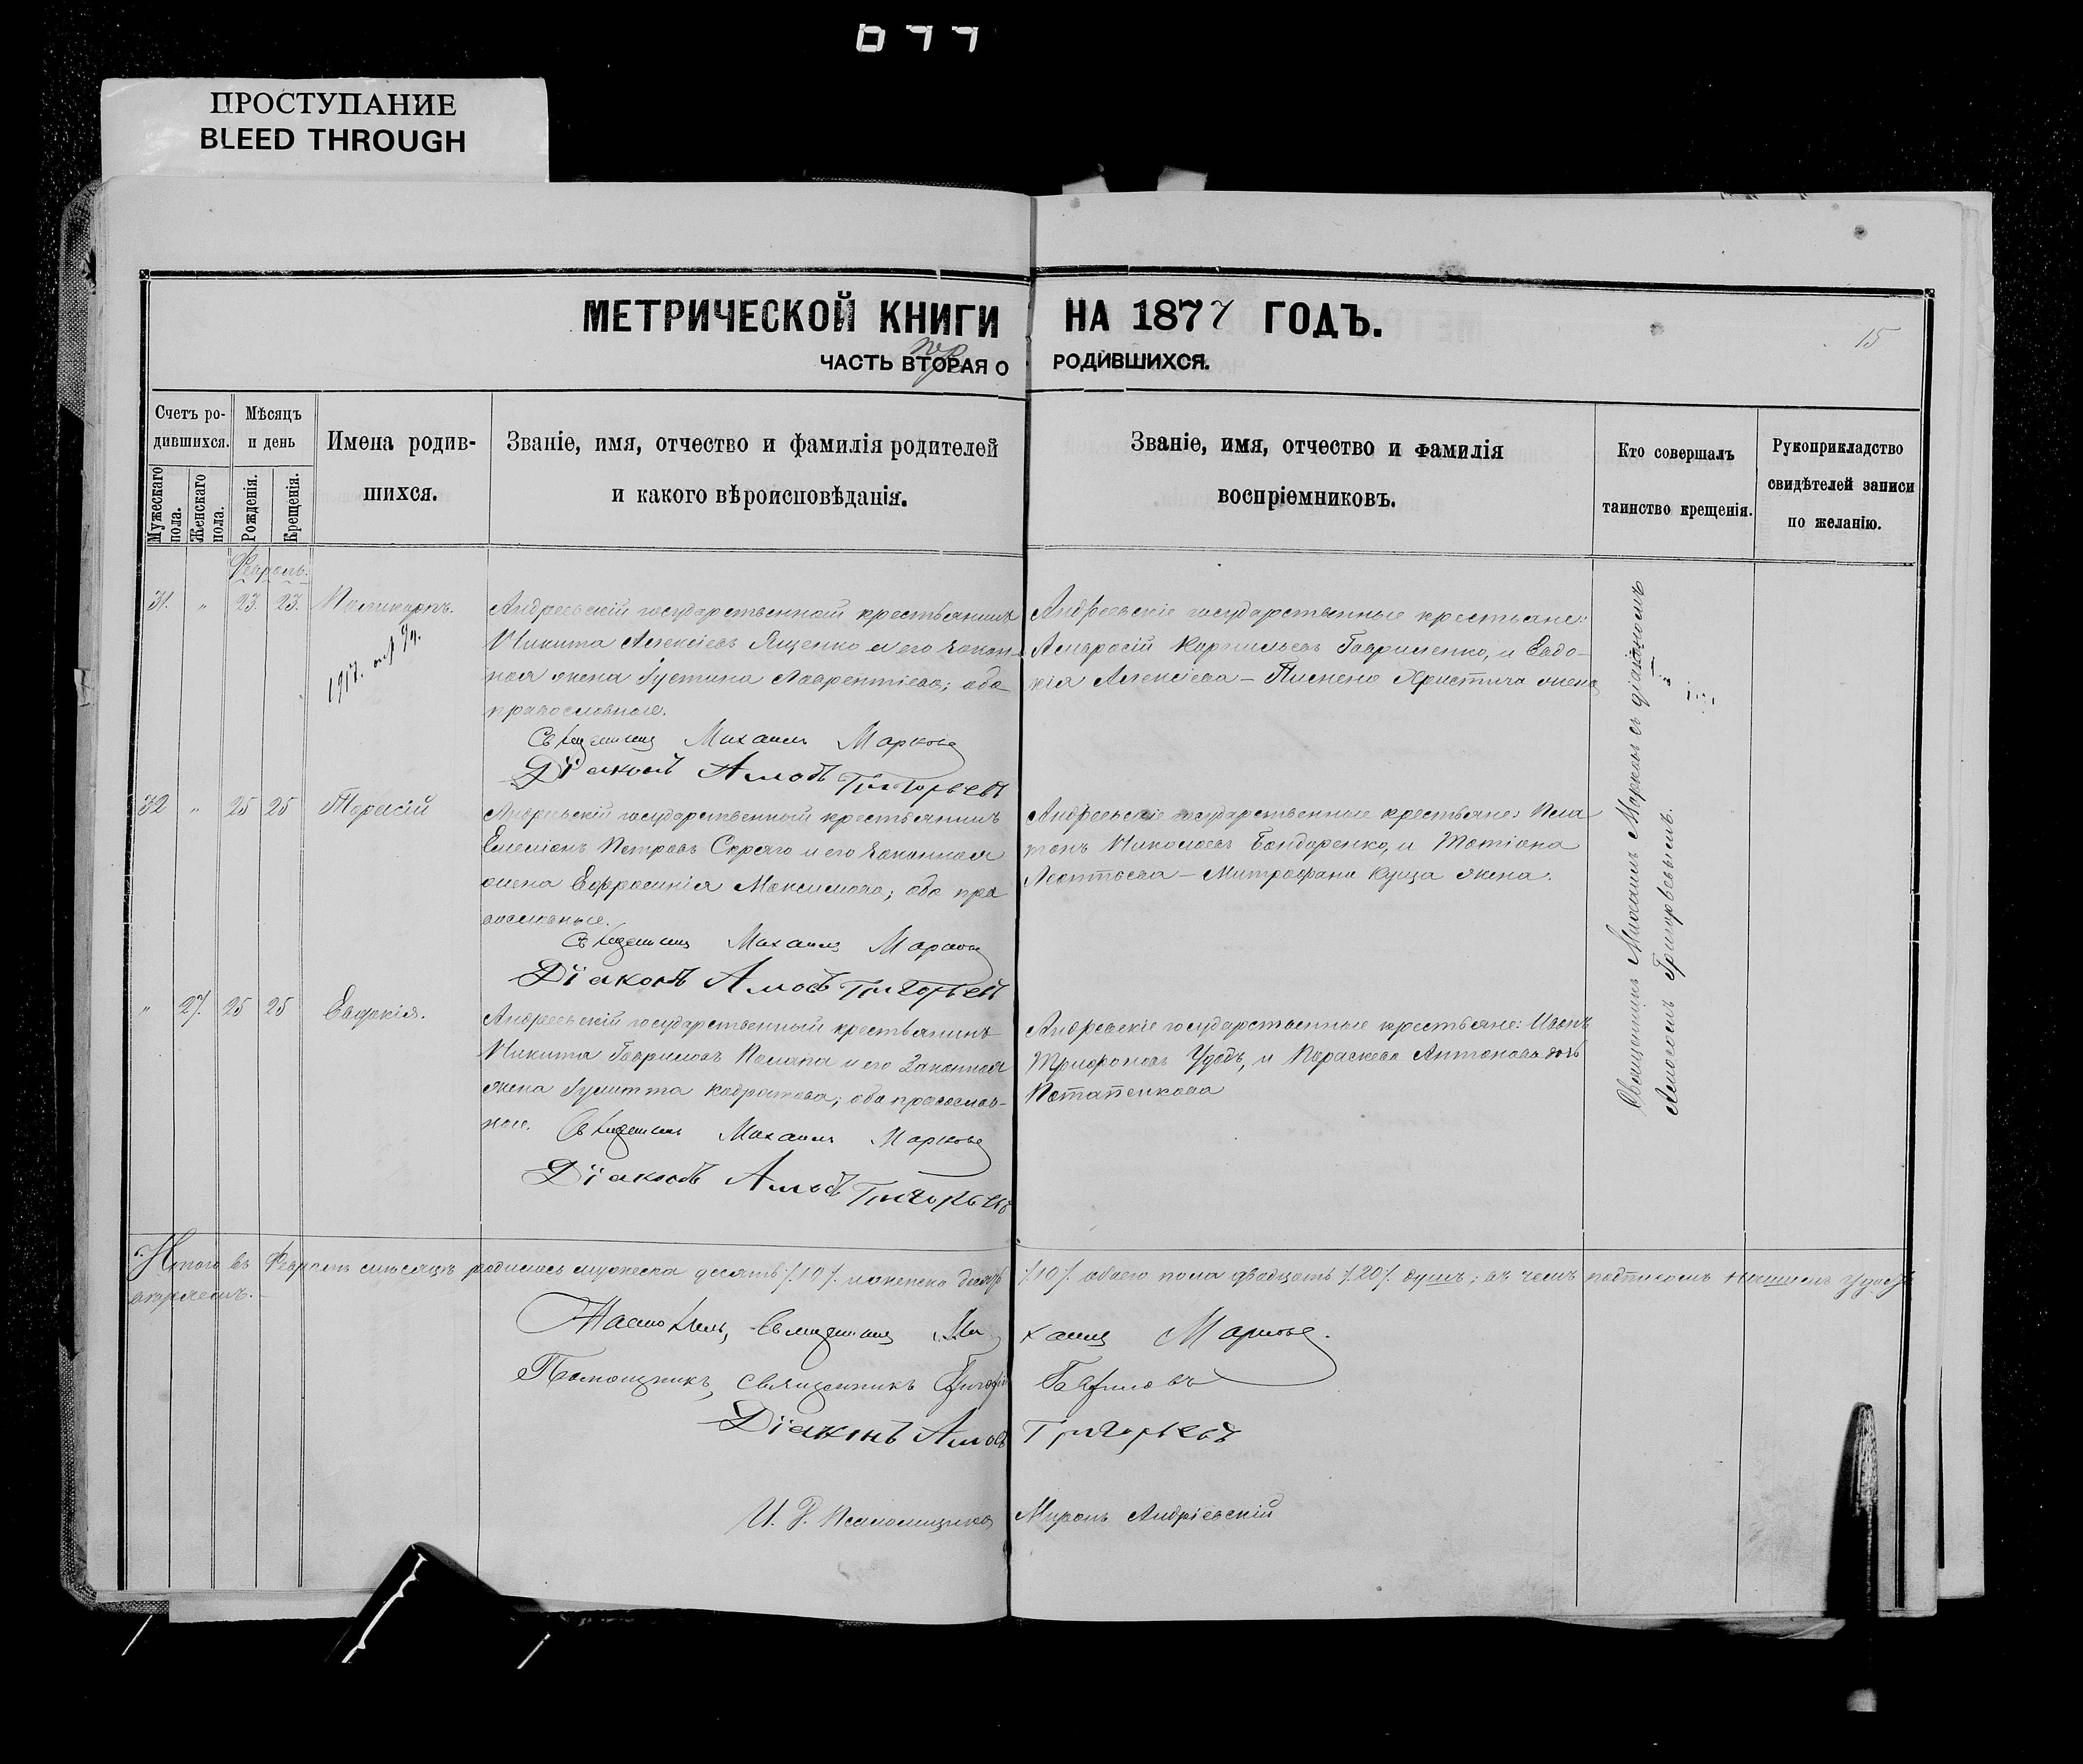 077
ПРОСТУПАНИЕ
BLEED THROUGH
МЕТРИЧЕСКОЙ КНИГИ НА 1877 ГОДЪ.
ЧАСТЬ ВТОРАЯ О РОДИВШИХСЯ.
15
Счетъ ро-
дившихся.
Мужескаго пола.
Женскаго пола.
Мѣсяцъ
и день
Рожденія.
Крещенія.
Имена родив-
шихся.
Званіе, имя, отчество и фамилія родителей
и какого вѣроисповѣданія.
Званіе, имя, отчество и фамилія
воспріемниковъ.
Кто совершалъ
таинство крещенія.
Рукоприкладство
свидѣтелей записи
по желанію.
Февраль.
31. " 23. 23. Поликарпъ.
Андреевскій государственный крестьянинъ
Никита Алексіевъ Ященко и его закон-
ная жена Іустина Лаврентіева; оба
православные.
Священникъ Михаилъ Марковъ
Діаконъ Амосъ Григорьевъ
Андреевскіе государственные крестьяне:
Амвросій Корнильевъ Гавриленко, и Евдо-
кія Алексіева – Пимена Христича жена
32 " 25 25 Тарасій
Андреевскій государственный крестьянинъ
Емеліонъ Петровъ Скряго и его законная
жена Евфросинія Максимова; оба пра
вославные.
Священникъ Михаилъ Марковъ
Діаконъ Амосъ Григорьевъ
Андреевскіе государственные крестьяне: Пла
тонъ Николаевъ Бондаренко, и Татіана
Леонтьева – Митрофана Куща жена.
" 27. 25 25 Евдокія.
Андреевскій государственный крестьянинъ
Никита Гавриловъ Палапа и его законная
жена Іулитта Кодратова; оба православ-
ные.
Священникъ Михаилъ Марковъ
Діаконъ Амосъ Григорьевъ
Андреевскіе государственные крестьяне: Иванъ
Трифоновъ Удодъ, и Параскева Антонова дочь
Потапенкова
Священникъ Михаилъ Марковъ съ діакономъ
Амосомъ Григорьевымъ.
Итого въ Февралѣ мѣсяцѣ родилось мужеска десять /10/. женска десять /10/. обоего пола двадцать /20/. душъ; въ чемъ подписомъ нашимъ удосто
вѣряемъ.
Настоятель, Священникъ Михаилъ Марковъ.
Помощникъ, священникъ Григорій
Діаконъ Амосъ Григорьевъ
И. Д. Псаломщика Миронъ Андріевскій